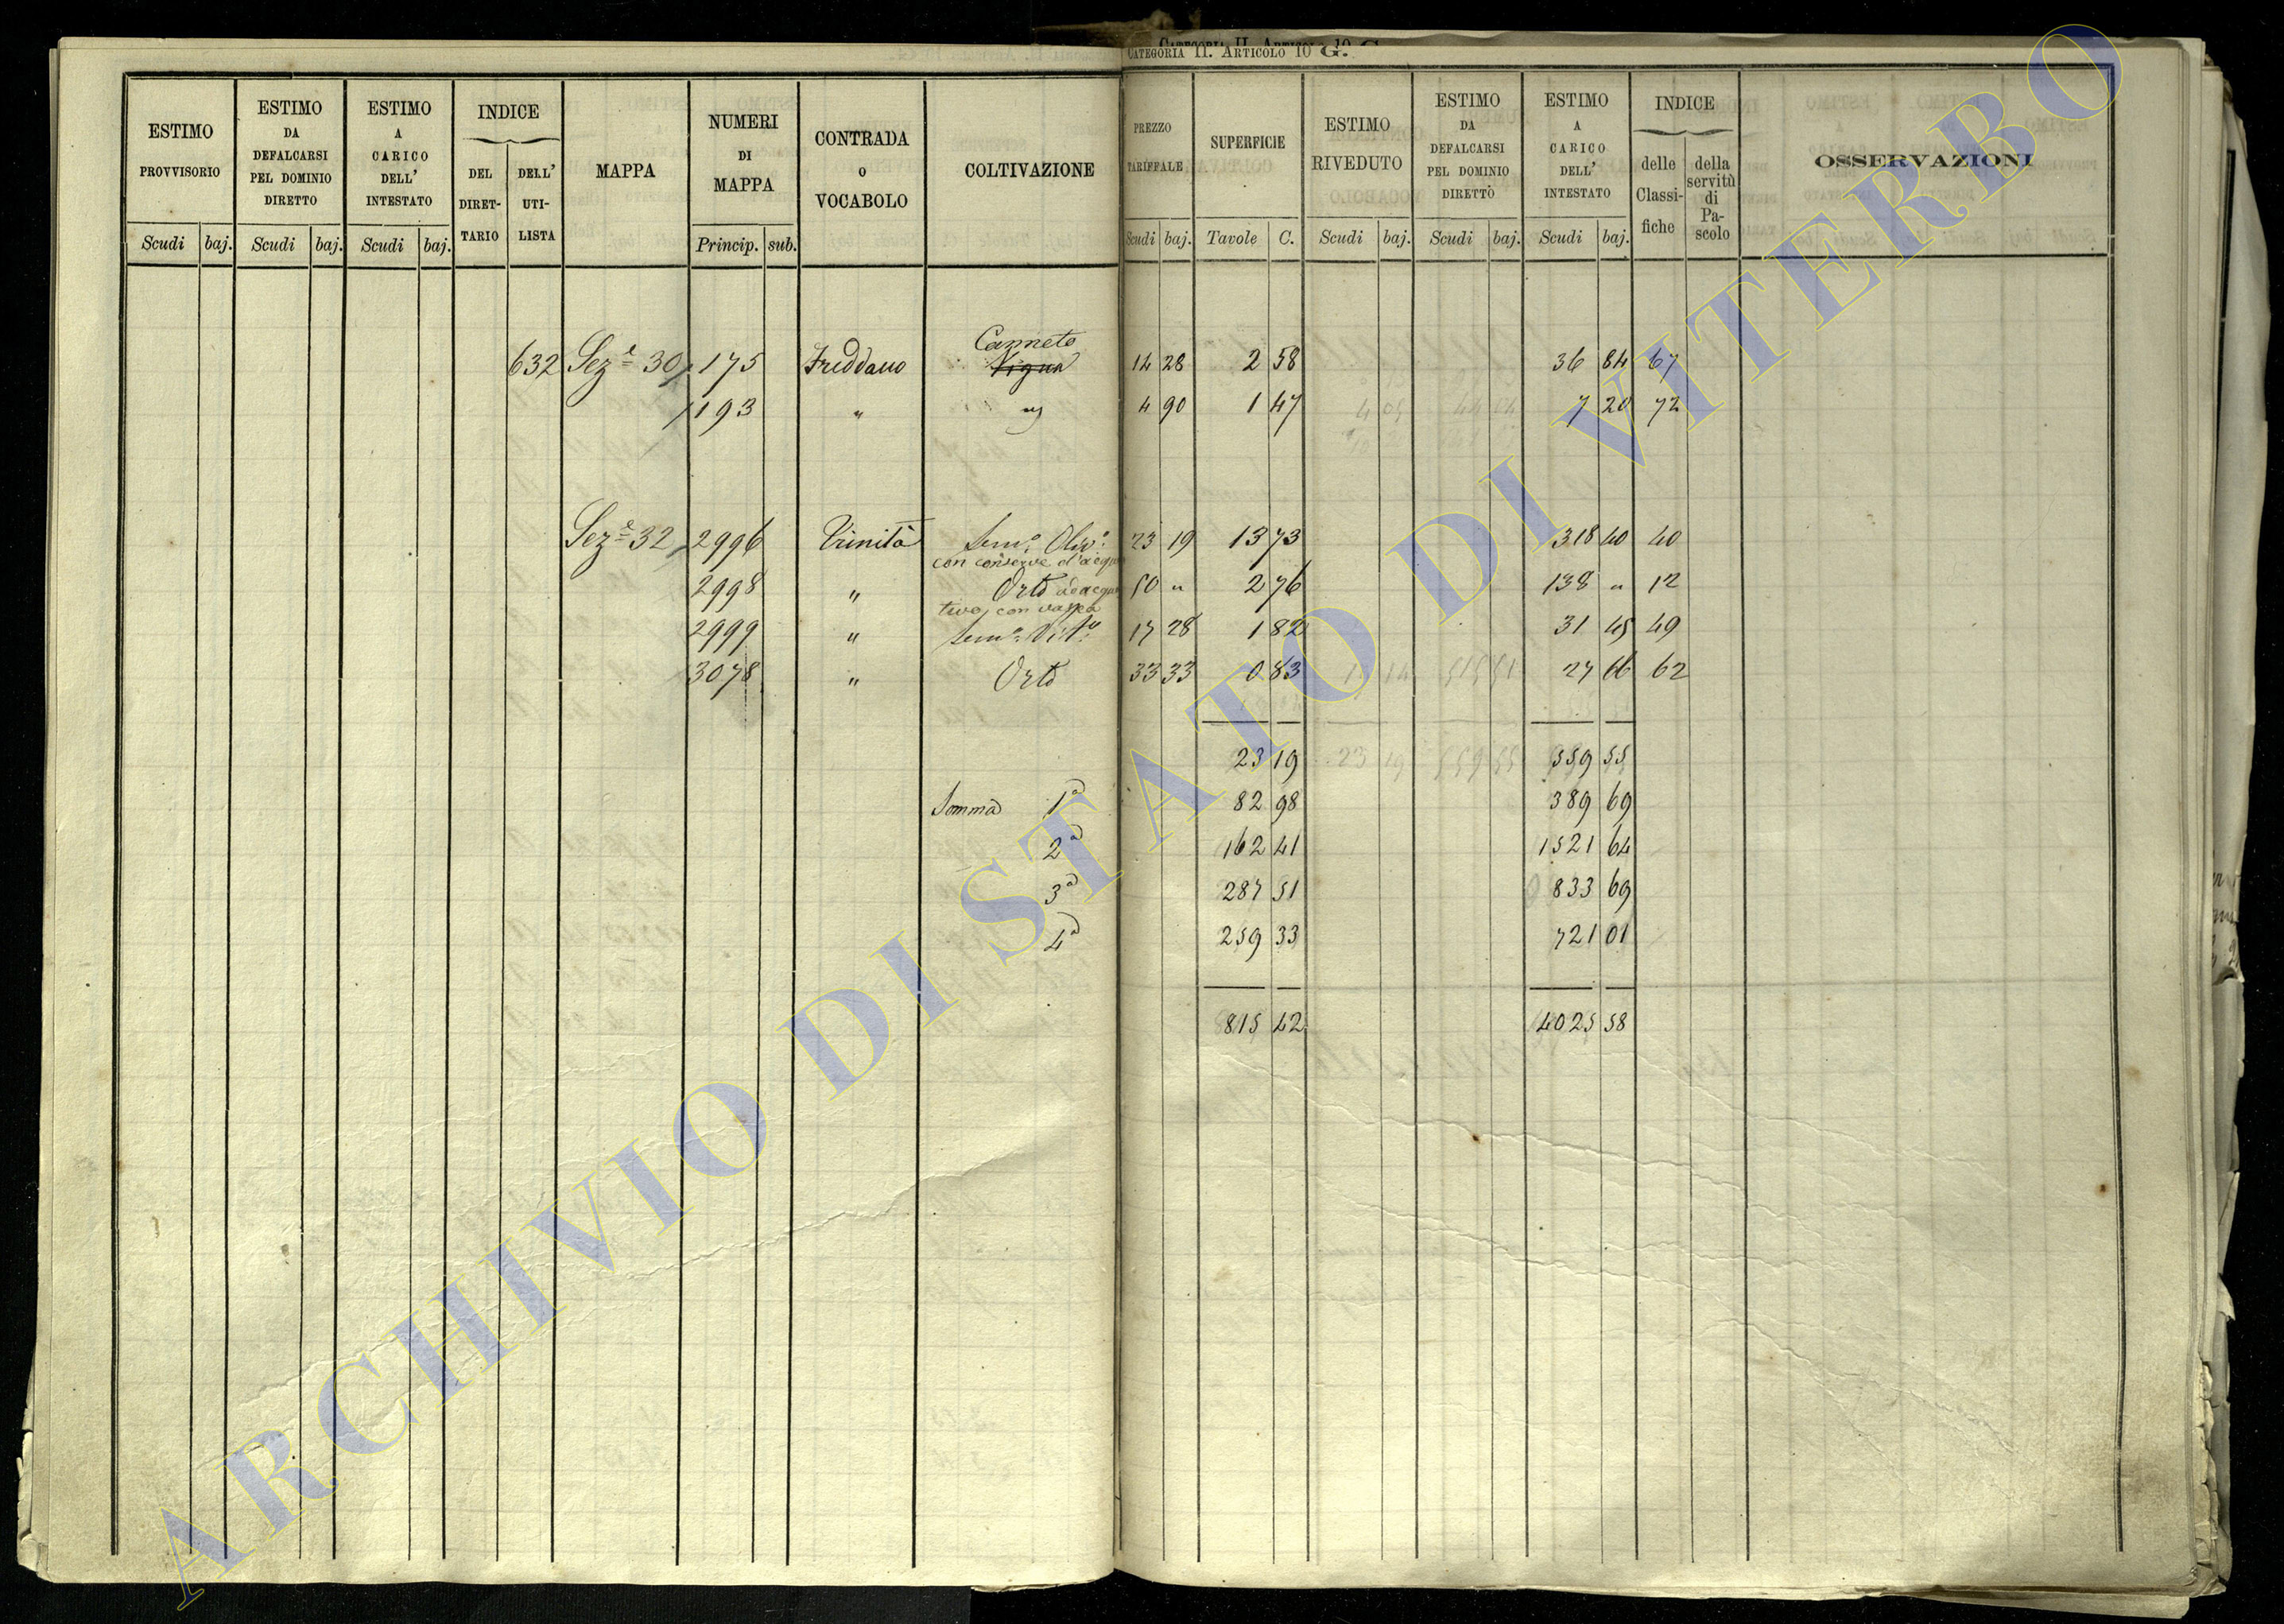 CATEGORIA II. ARTICOLO 10 G.
ESTIMO PROVVISORIO
ESTIMO DA DEFALCARSI PEL DOMINIO DIRETTO
ESTIMO A CARICO DELL' INTESTATO
INDICE
DEL DIRETTARIO
DELL' UTILISTA
MAPPA
NUMERI DI MAPPA
CONTRADA O VOCABOLO
COLTIVAZIONE
PREZZO TARIFFALE
SUPERFICIE
ESTIMO RIVEDUTO
ESTIMO DA DEFALCARSI PEL DOMINIO DIRETTO
ESTIMO A CARICO DELL' INTESTATO
INDICE
delle Classifiche
della servitù di Pascolo
OSSERVAZIONI
Scudi baj. Scudi baj. Scudi baj. Princip. sub. Scudi baj. Tavole C. Scudi baj. Scudi baj. Scudi baj.
Canneto
632 Sez.e 30 175 Freddano Vigna 14 28 2 58 36 84 67
193 " " 4 90 1 47 7 20 72
Sez.e 32 2996 Trinità Sem.o Oliv.o 23 19 13 73 318 40 40
con conserve d'acqua
2998 " Orto adacqua 50 " 2 76 138 " 12
tivo, con vasca
2999 " Sem.o Vit.o 17 28 1 82 31 45 49
3078 " Orto 33 33 0 83 27 66 62
23 19 559 55
Somma 1a 82 98 389 69
2a 162 41 1521 64
3a 287 51 833 69
4a 259 33 721 01
815 42 4025 58
ARCHIVIO DI STATO DI VITERBO